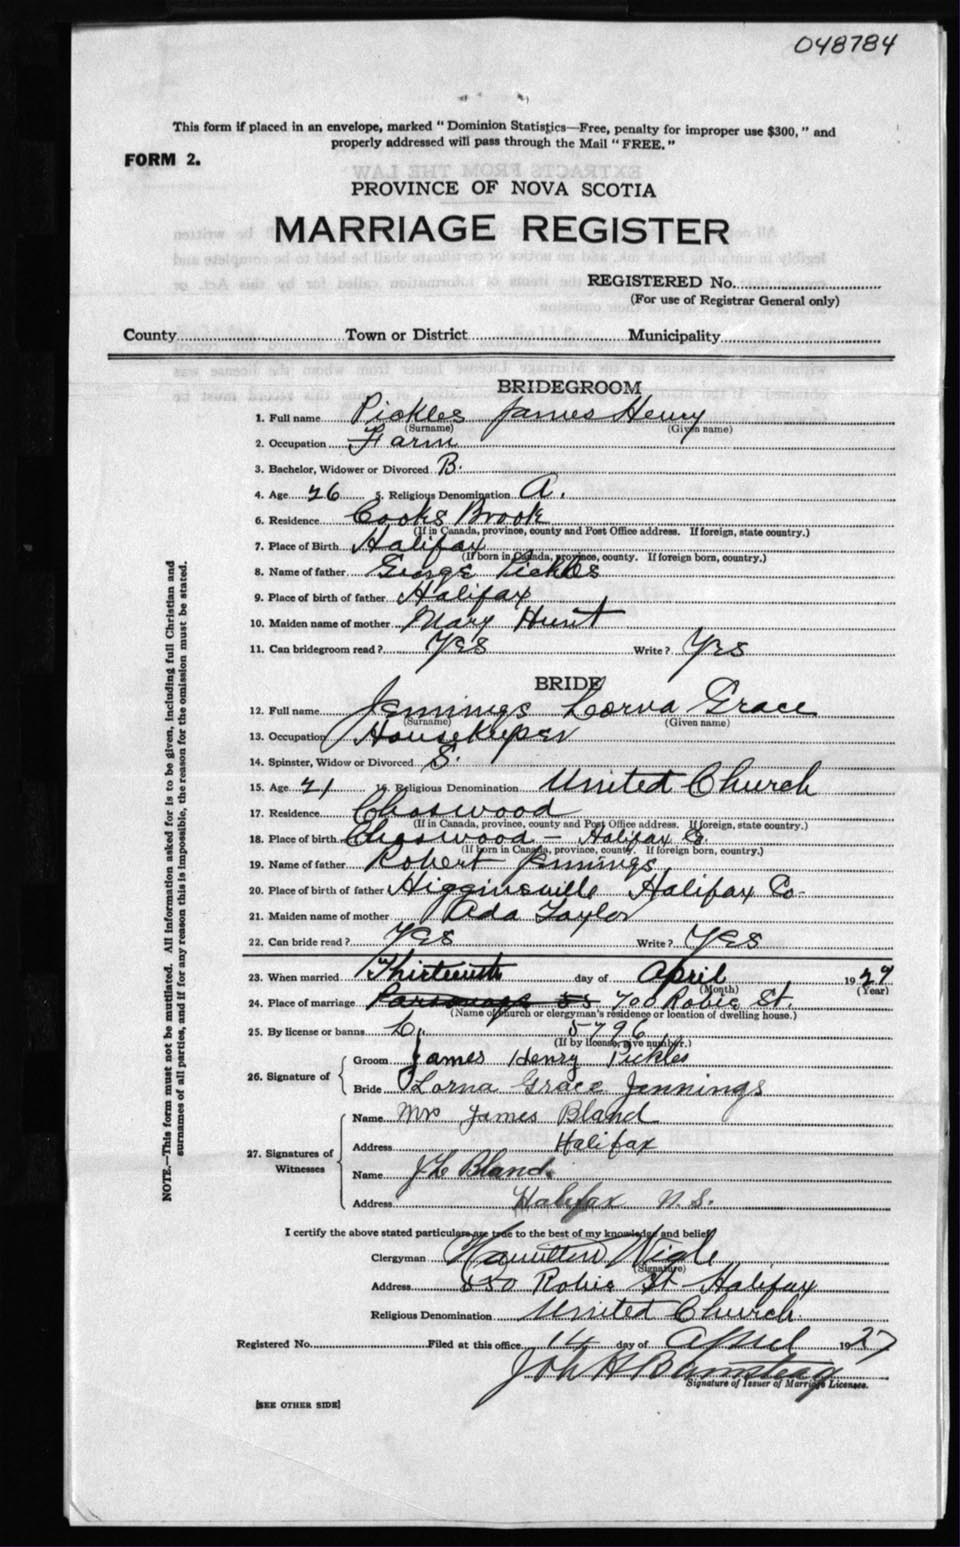 048784
This form if placed in an envelope, marked "Dominion Statistics—Free, penalty for improper use $300," and
properly addressed will pass through the Mail "FREE."
FORM 2.
PROVINCE OF NOVA SCOTIA
MARRIAGE REGISTER
REGISTERED No.
(For use of Registrar General only)
County Town or District Municipality
BRIDEGROOM
1. Full name Pickles James Henry
(Surname) (Given name)
2. Occupation Farm
3. Bachelor, Widower or Divorced B.
4. Age 26 5. Religious Denomination A.
6. Residence Cooks Brook
(If in Canada, province, county and Post Office address. If foreign, state country.)
7. Place of Birth Halifax
(If born in Canada, province, county. If foreign born, country.)
8. Name of father George Pickles
9. Place of birth of father Halifax
10. Maiden name of mother Mary Hunt
11. Can bridegroom read? Yes Write? Yes
BRIDE
12. Full name Jennings Lorna Grace
(Surname) (Given name)
13. Occupation Housekeeper
14. Spinster, Widow or Divorced S.
15. Age 21 16. Religious Denomination United Church
17. Residence Chaswood
(If in Canada, province, county and Post Office address. If foreign, state country.)
18. Place of birth Chaswood — Halifax Co
(If born in Canada, province, county. If foreign born, country.)
19. Name of father Robert Jennings
20. Place of birth of father Higginsville Halifax Co-
21. Maiden name of mother Ada Taylor
22. Can bride read? Yes Write? Yes
23. When married Thirteenth day of April 1927
(Month) (Year)
24. Place of marriage Parsonage 700 Robie St.
(Name of church or clergyman's residence or location of dwelling house.)
25. By license or banns L. 5796
(If by license, give number.)
26. Signature of
Groom James Henry Pickles
Bride Lorna Grace Jennings
27. Signatures of
Witnesses
Name Mrs James Bland
Address Halifax
Name Bland.
Address Halifax N.S.
I certify the above stated particulars are true to the best of my knowledge and belief
Clergyman Hamilton Wigle
(Signature)
Address 550 Robie St Halifax
Religious Denomination United Church
Registered No. Filed at this office 14 day of April 1927
Signature of Issuer of Marriage Licenses.
[SEE OTHER SIDE]
NOTE.—This form must not be mutilated. All information asked for is to be given, including full Christian and
surnames of all parties, and if for any reason this is impossible, the reason for the omission must be stated.